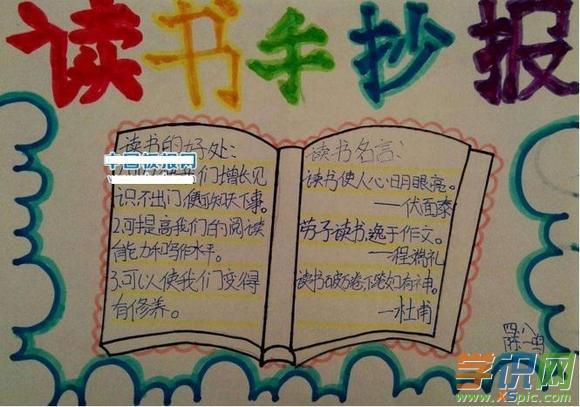 读书手抄报
读书的好处:
中国板报网
们增长见
识不出门便可知天下事。
2.可提高我们的阅读
能力和写作水平。
3.可以使我们变得
有修养。
读书名言:
读书使人心明眼亮。
——伏面泰
劳于读书,逸于作文。
—程端礼
读书破万卷下笔如有神。
—杜甫
四.八
陈一鸣
学识网
www.XSpic.com